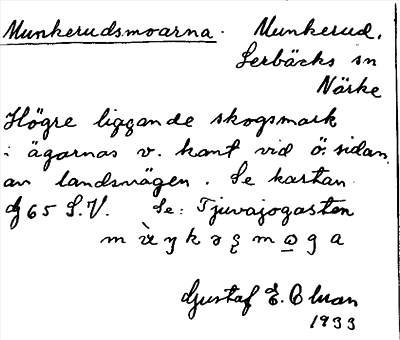 Munkerudsmoarna. Munkerud,
Lerbäcks sn
Närke
Högre liggande skogsmark
i ägornas v. kant vid ö. sidan
av landsvägen. Se kartan
65 S.V. Se: Tjuvajogasten
Gustaf E. Olsson
1933